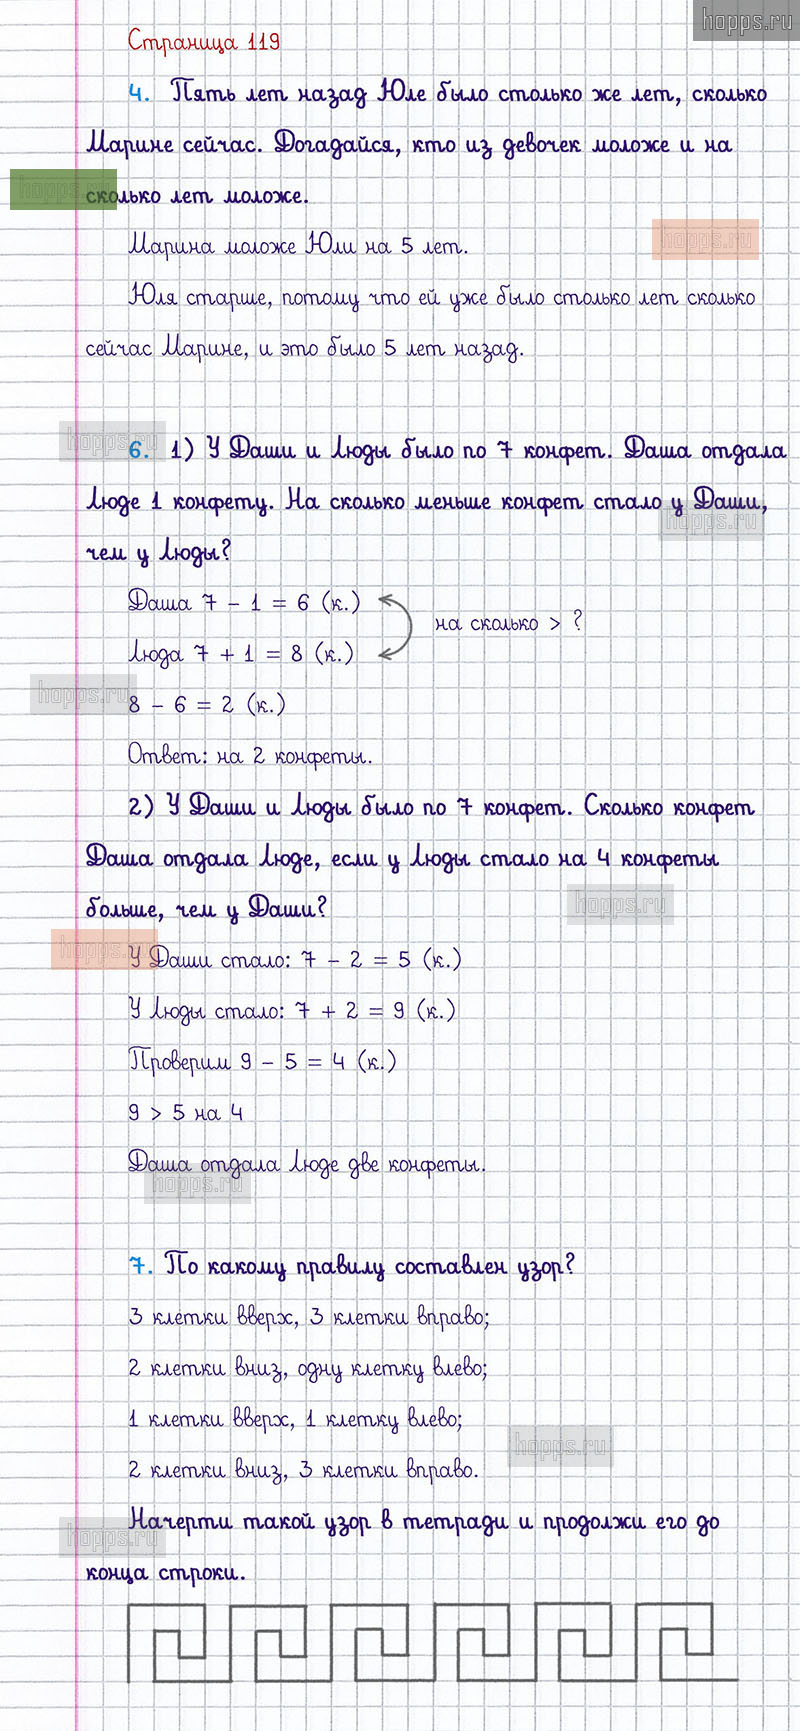 hopps.ru
Страница 119
4. Пять лет назад Юле было столько же лет, сколько
Марине сейчас. Догадайся, кто из девочек моложе и на
hopps.ru
сколько лет моложе.
hopps.ru
Марина моложе Юли на 5 лет.
Юля старше, потому что ей уже было столько лет сколько
сейчас Марине, и это было 5 лет назад.
hopps.ru
6. 1) У Даши и Люды было по 7 конфет. Даша отдала
Люде 1 конфету. На сколько меньше конфет стало у Даши,
hopps.ru
чем у Люды?
Даша 7 - 1 = 6 (к.)
на сколько > ?
Люда 7 + 1 = 8 (к.)
hopps.ru
8 - 6 = 2 (к.)
Ответ: на 2 конфеты.
2) У Даши и Люды было по 7 конфет. Сколько конфет
Даша отдала Люде, если у Люды стало на 4 конфеты
hopps.ru
больше, чем у Даши?
hopps.ru
У Даши стало: 7 - 2 = 5 (к.)
У Люды стало: 7 + 2 = 9 (к.)
Проверим 9 - 5 = 4 (к.)
9 > 5 на 4
Даша отдала Люде две конфеты.
hopps.ru
7. По какому правилу составлен узор?
3 клетки вверх, 3 клетки вправо;
2 клетки вниз, одну клетку влево;
1 клетки вверх, 1 клетку влево;
hopps.ru
2 клетки вниз, 3 клетки вправо.
Начерти такой узор в тетради и продолжи его до
hopps.ru
конца строки.